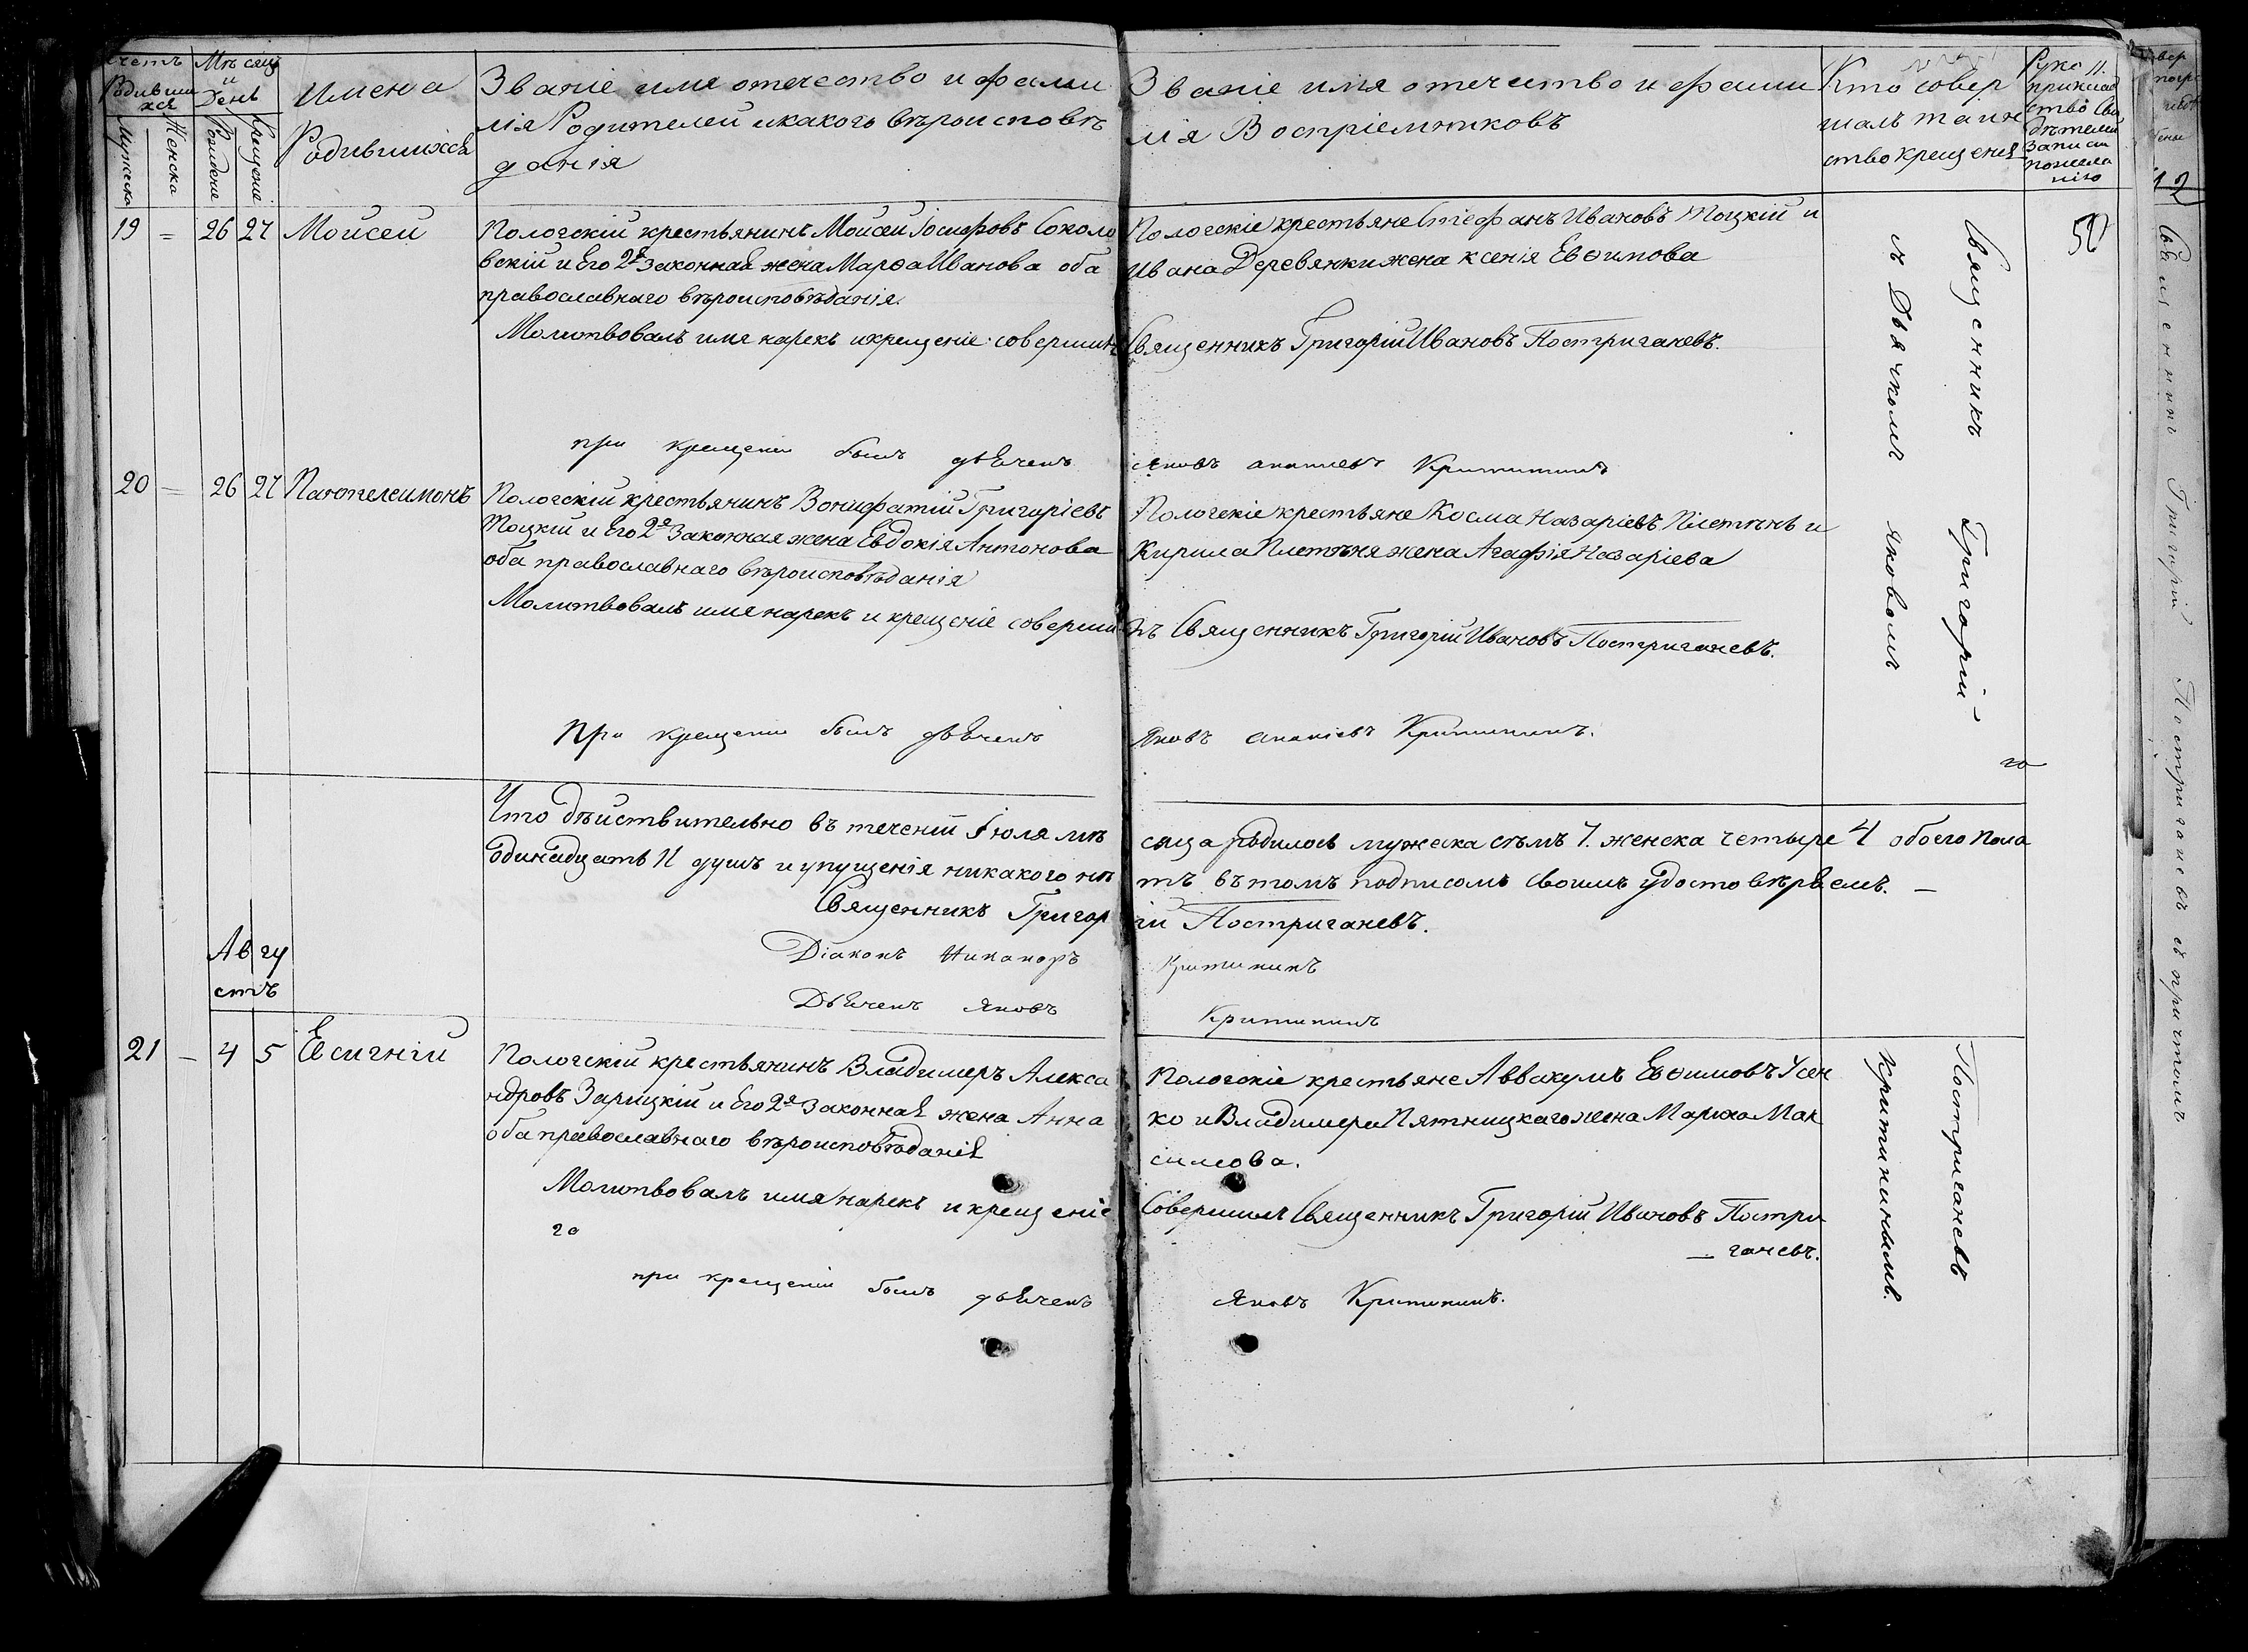 Счетъ Родившихся
Мѣсяцъ и День
Имена
Родившихся
Мужеска
Женска
Рожденія
Крещенія
Званіе имя отечество и фами
лія Родителей и какого вѣроисповѣ
данія
Званіе имя отечество и фами
лія Воспріемниковъ
Кто совер
шалъ таин
ство крещенія
Руко
приклад
ство Сви
дѣтелей
записи
по жела
нію
19 = 26 27 Моисей
Пологскій крестьянинъ Моисей Іосифовъ Соколо
вскій и Его 2я законная жена Марѳа Иванова оба
православнаго вѣроисповѣданія.
Молитвовалъ имя нарекъ и крещеніе совершилъ
Пологскіе крестьяне Стефанъ Ивановъ Тоцкій и
Ивана Деревянки жена Ксенія Евѳимова
Священникъ Григорій Ивановъ Постриганевъ.
при крещеніи былъ дьяченъ
Яковъ Ананіевъ Критининъ
20 = 26 27 Пантелеимонъ
Пологскій крестьянинъ Вонифатій Григоріевъ
Тоцкій и Его 2я Законная жена Евдокія Антонова
оба православнаго вѣроисповѣданія
Молитвовалъ имя нарекъ и крещеніе соверши
Пологскіе крестьяне Косма Назаріевъ Плетѣнь и
Кирила Плетѣня жена Агафія Назаріева
лъ Священникъ Григорій Ивановъ Постриганевъ.
При крещеніи былъ дьяченъ
Яковъ Ананіевъ Критининъ.
Священникъ Григорій
съ Дьячкомъ Яковомъ
го
Что дѣйствительно въ теченіи Іюля мѣ
сяца родилось мужеска сѣмъ 7. женска четыре 4 обоего пола
одинадцать 11 душъ и упущенія никакого нѣ
тъ въ томъ подписомъ своимъ удостовѣряемъ. —
Священникъ Григор
ій Постриганевъ.
Діаконъ Никаноръ
Критининъ
Дьяченъ Яковъ
Критининъ
Авгу
стъ
21 — 4 5 Евсигній
Пологскій крестьянинъ Владимеръ Алекса
ндровъ Зарицкій и Его 2я Законная жена Анна
оба православнаго вѣроисповѣданія
Молитвовалъ имя нарекъ и крещеніе
го
Пологскіе крестьяне Аввакумъ Евѳимовъ Усен
ко и Владимера Пятницкаго жена Марѳа Мак
симова.
Совершилъ Священникъ Григорій Ивановъ Постри
— ганевъ.
при крещеніи былъ дьяченъ
Яковъ Критининъ.
Постриганевъ
Критининымъ.
Священникъ Григорій Постриганевъ съ причтомъ